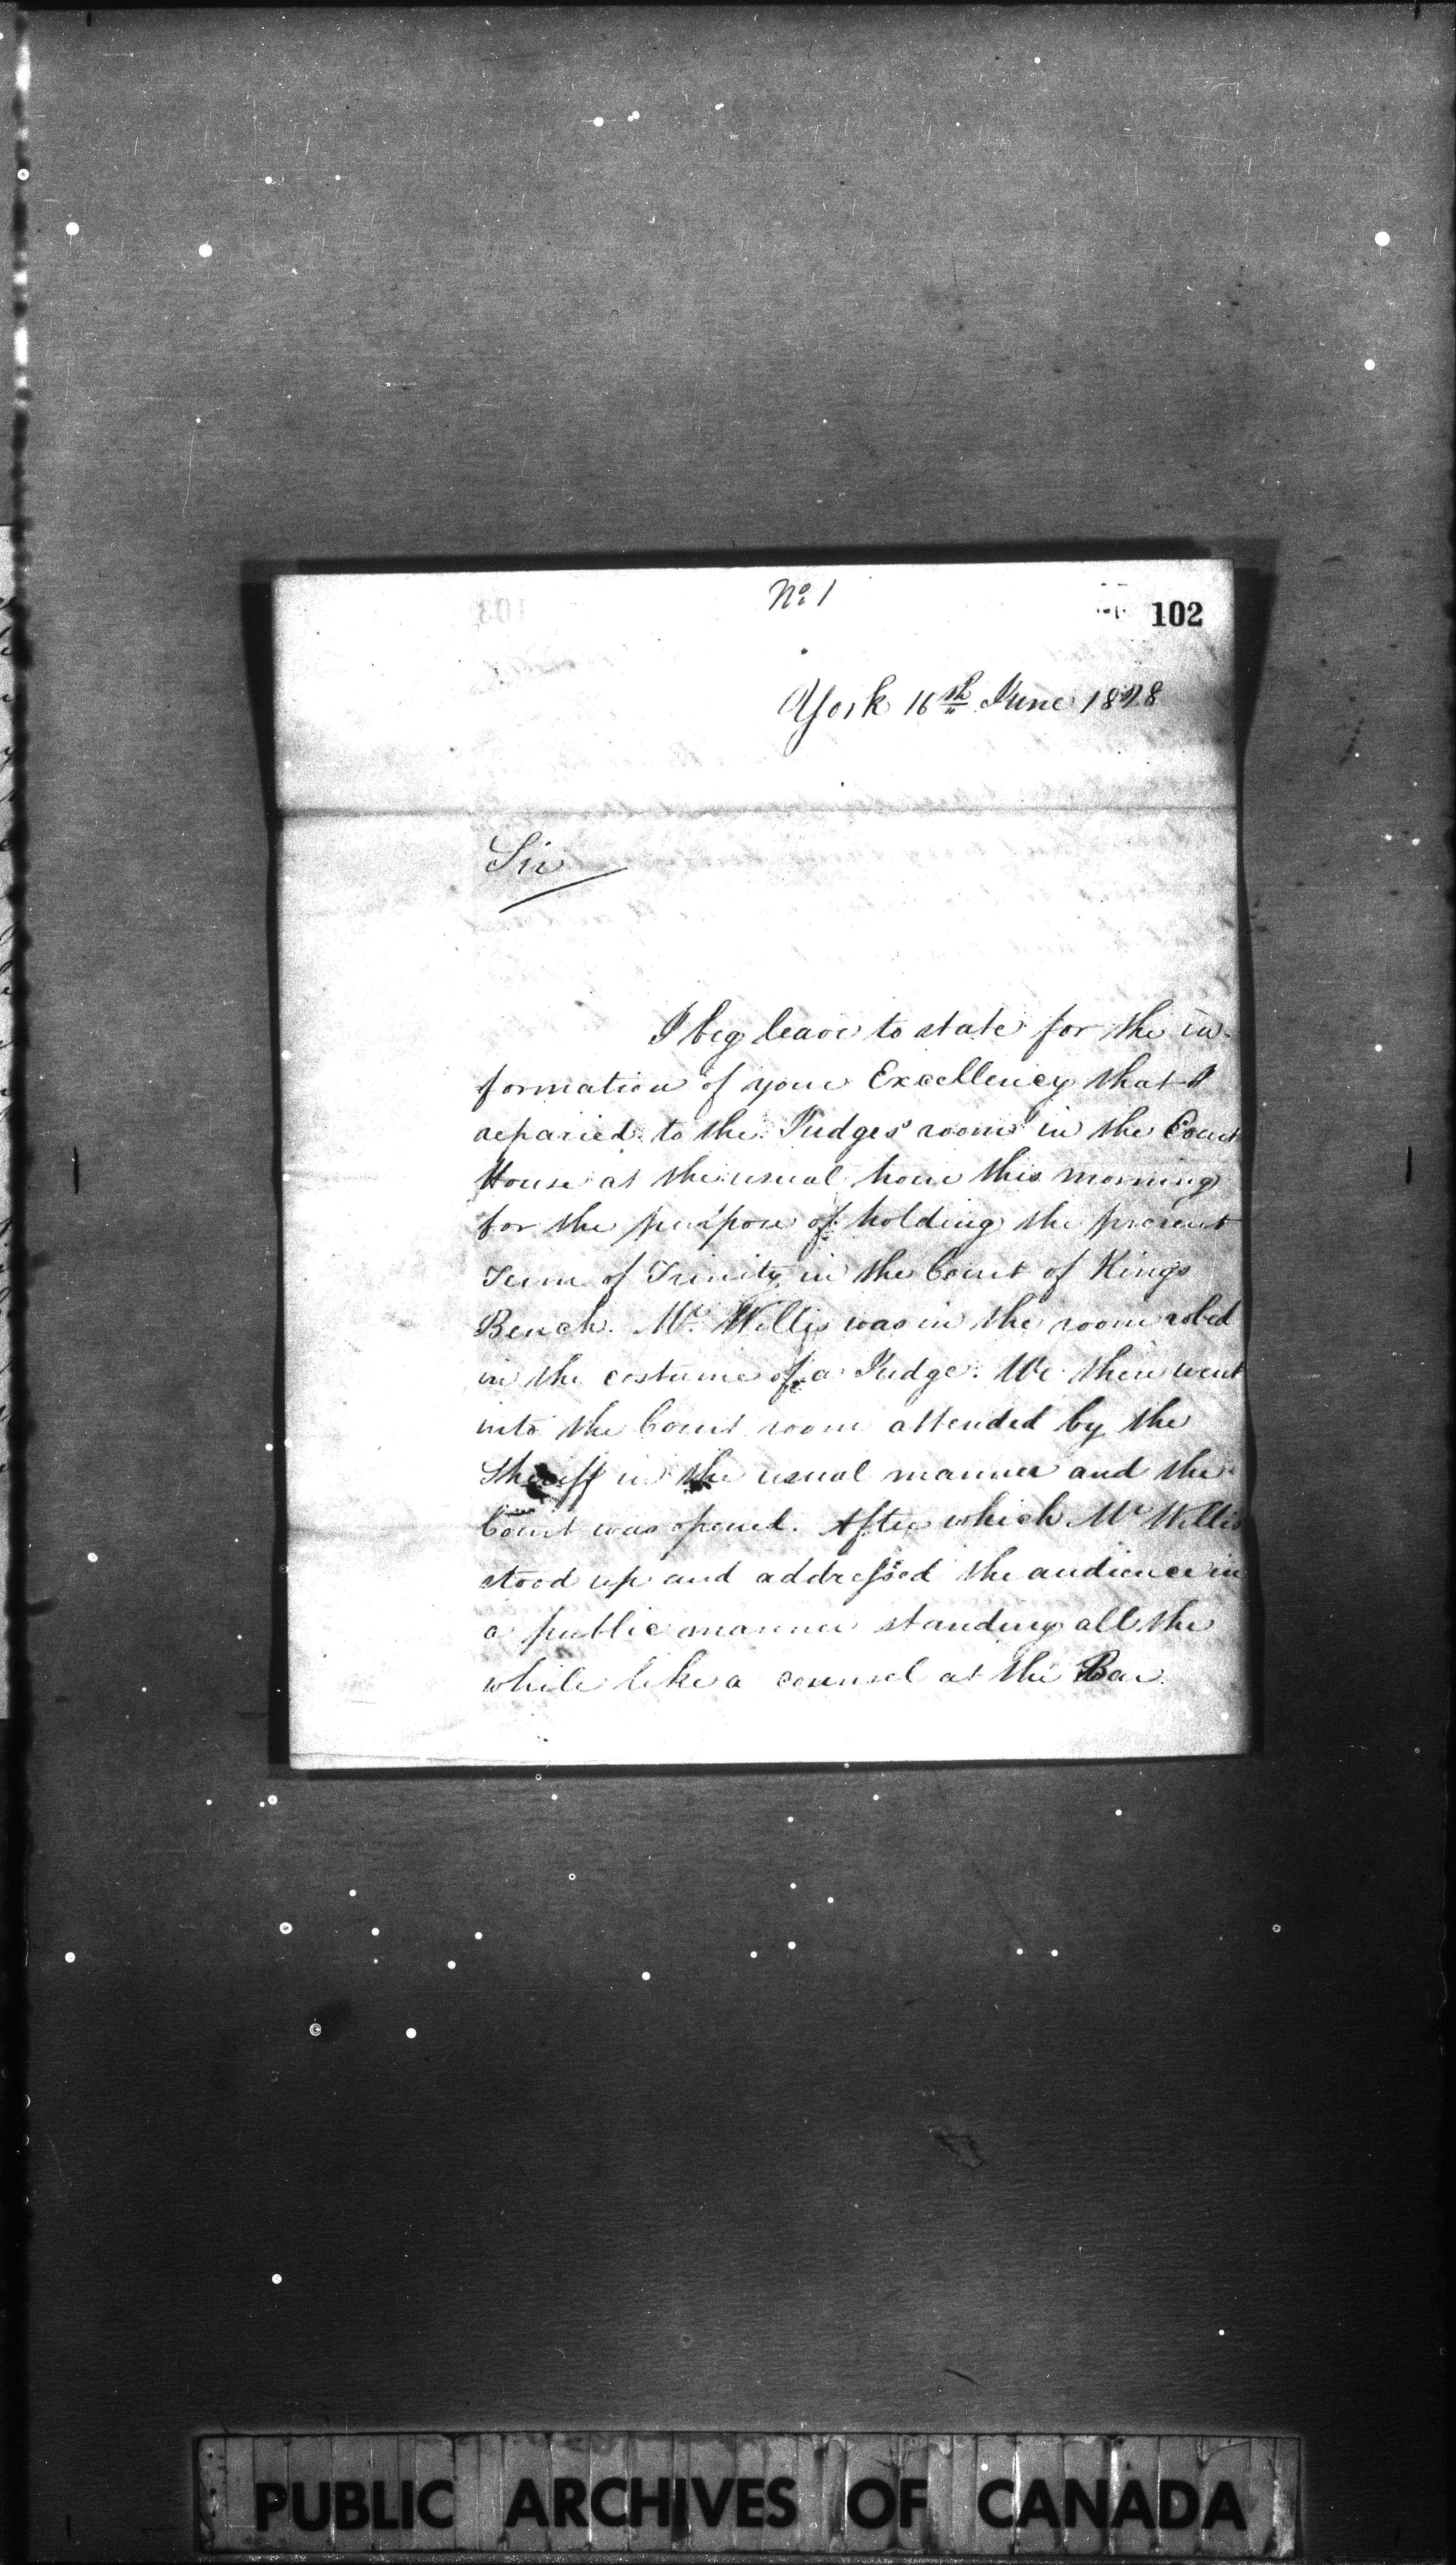 No. 1
102
York 16th June 1828
Sir
I beg leave to state for the in-
formation of your Excellency that I
reparied to the Judges' room in the Court
House at the usual hour this morning
for the purpose of holding the present
Term of Trinity in the Court of Kings
Bench. Mr. Willis was in the room robed
in the costume of a Judge. We then went
into the Court room attended by the
Sheriff in the usual manner and the
Court was opened. After which Mr Willis
stood up and addressed the audience in
a public manner standing all the
while like a counsel at the Bar.
PUBLIC ARCHIVES OF CANADA